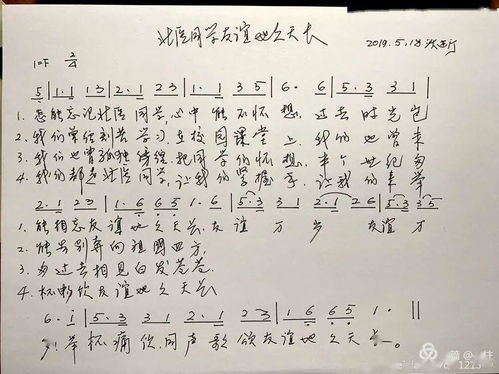 北医同学友谊地久天长
2019.5.13
1=F 2/4
5 | 1·1 13 | 2·1 23 | 1·1 35 | 6· 6 | 5·3 31 |
1. 怎能忘记北医同学,心中能不怀想,过去时光岂
2. 我们曾经刻苦学习,在校园课堂上,我们也曾来
3. 我们也曾孤独 把同学们怀想,半个世纪匆
4. 我们都是北医同学,让我们紧握手,让我们来举
2·1 23 | 1·6 65 | 1· 6 | 5·3 31 | 2·1 26 | 5·3 35 |
1. 能相忘友谊地久天长.友谊万岁 友谊万
2. 能告别奔向祖国四方.
3. 匆过去相见白发苍苍.
4. 杯畅饮友谊地久天长
6· i | 5·3 31 2·1 23 | 1 6 65 1· ||
岁!举杯痛饮,同声歌颂友谊地久天长。